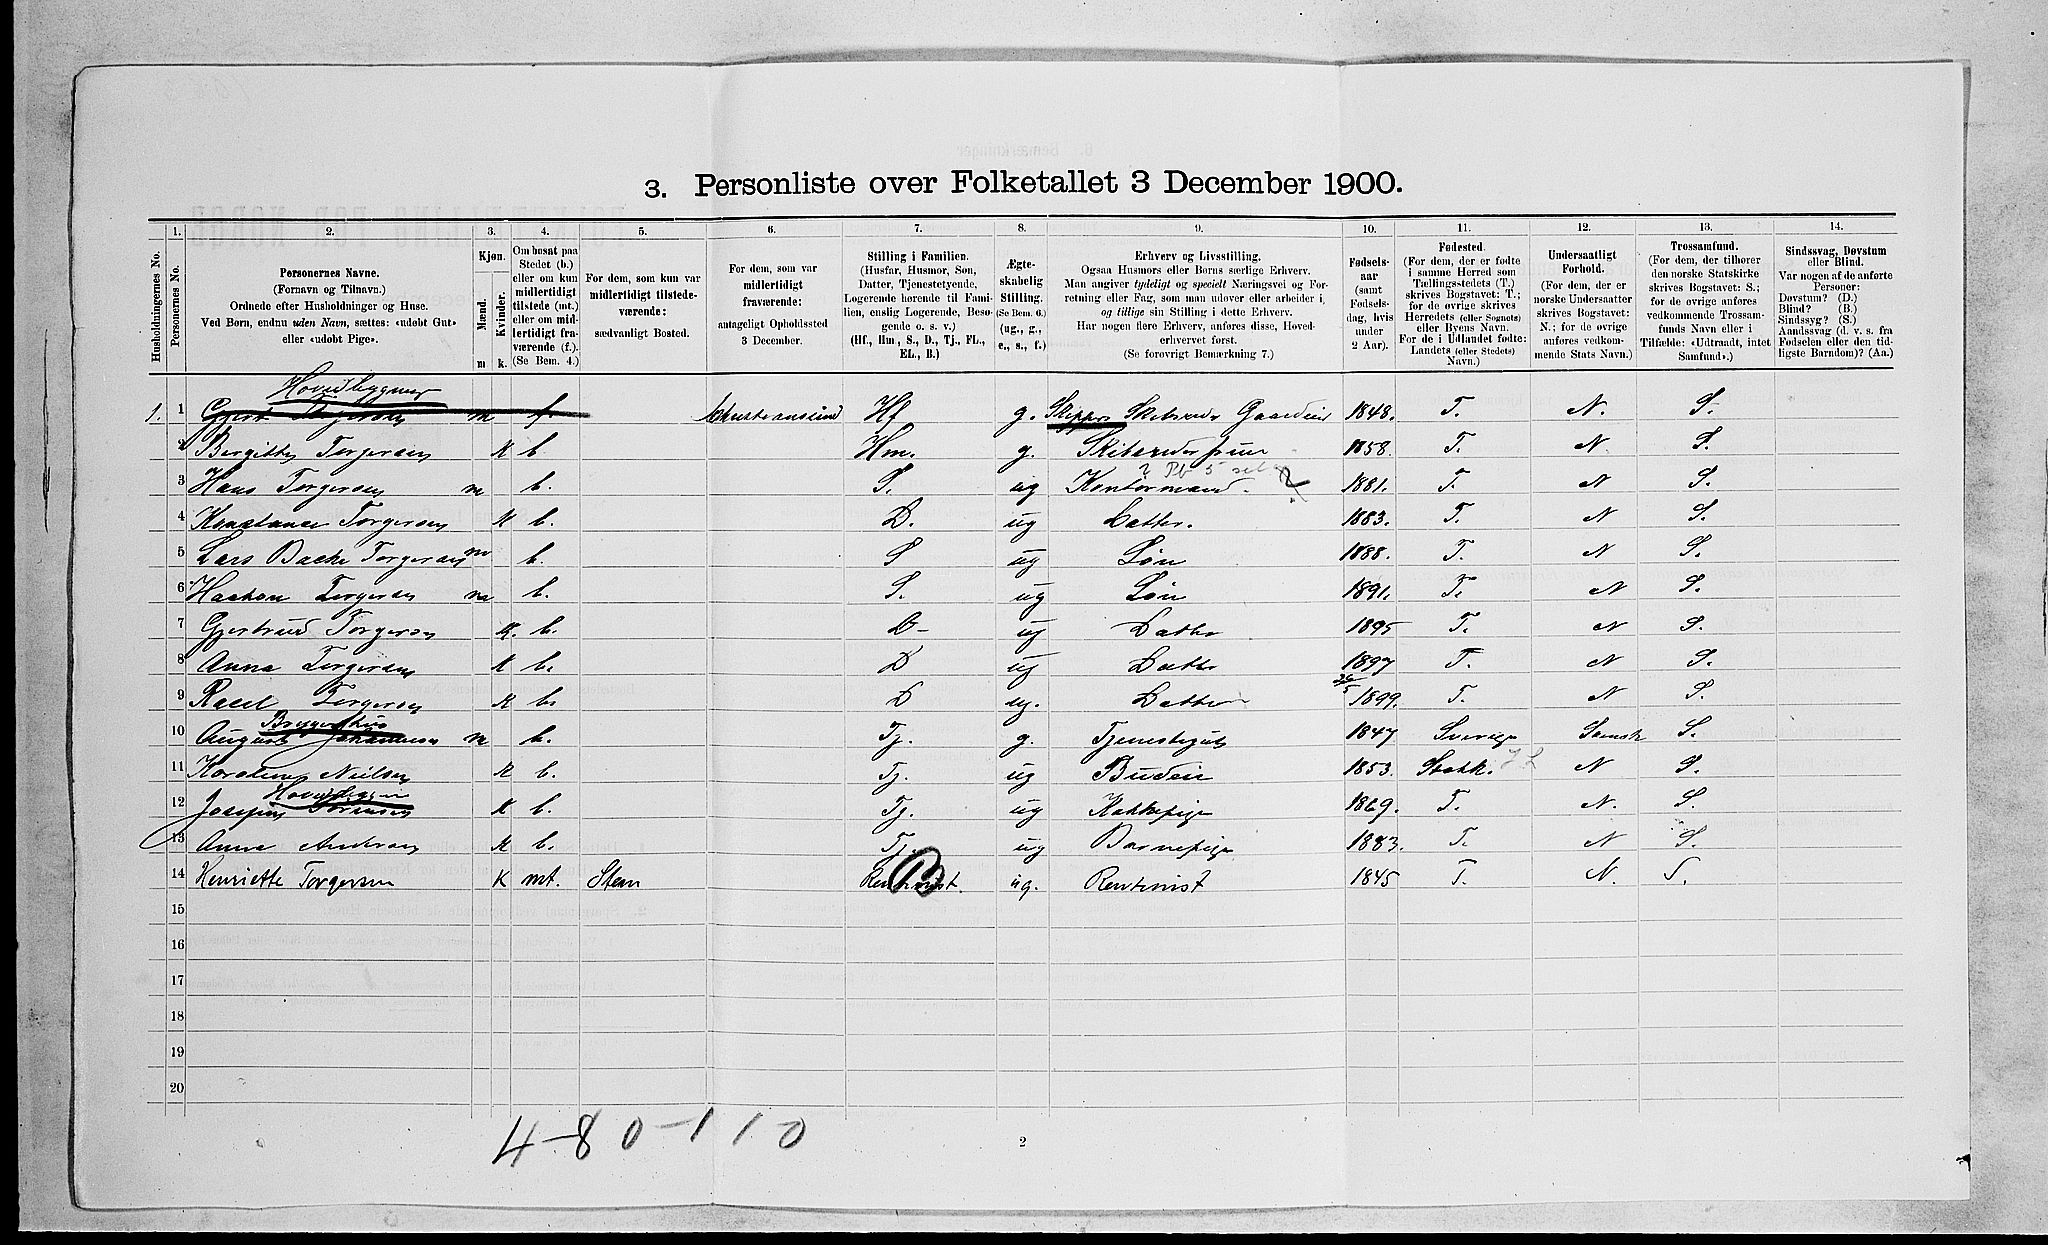 3. Personliste over Folketallet 3 December 1900.
Husholdningernes No.
1. Personernes No.
2. Personernes Navne.
(Fornavn og Tilnavn.)
Ordnede efter Husholdninger og Huse.
Ved Børn, endnu uden Navn, sættes: «udøbt Gut»
eller «udøbt Pige».
3. Kjøn.
Mænd. Kvinder.
m k.
4. Om bosat paa
Stedet (b.)
eller om kun
midlertidigt
tilstede (mt.)
eller om mid-
lertidigt fra-
værende (f.).
(Se Bem. 4.)
5. For dem, som kun var
midlertidigt tilstede-
værende:
sædvanligt Bosted.
6. For dem, som var
midlertidigt
fraværende:
antageligt Opholdssted
3 December.
7. Stilling i Familien.
(Husfar, Husmor, Søn,
Datter, Tjenestetyende,
Logerende hørende til Fami-
lien, enslig Logerende, Besø-
gende o. s. v.)
(Hf., Hm., S., D., Tj., FL.,
EL., B.)
8. Ægte-
skabelig
Stilling.
(Se Bem. 6.)
(ug., g.,
e., s., f.)
9. Erhverv og Livsstilling.
Ogsaa Husmors eller Børns særlige Erhverv.
Man angiver tydeligt og specielt Næringsvei og For-
retning eller Fag, som man udøver eller arbeider i,
og tillige sin Stilling i dette Erhverv.
Har nogen flere Erhverv, anføres disse, Hoved-
erhvervet først.
(Se forøvrigt Bemærkning 7.)
10. Fødsels-
aar
(samt
Fødsels-
dag, hvis
under
2 Aar).
11. Fødested.
(For dem, der er fødte
i samme Herred som
Tællingsstedets (T.)
skrives Bogstavet: T.;
for de øvrige skrives
Herredets (eller Sognets)
eller Byens Navn.
For de i Udlandet fødte:
Landets (eller Stedets)
Navn.)
12. Undersaatligt
Forhold.
(For dem, der er
norske Undersaatter
skrives Bogstavet:
N.; for de øvrige
anføres vedkom-
mende Stats Navn.)
13. Trossamfund.
(For dem, der tilhører
den norske Statskirke
skrives Bogstavet: S.;
for de øvrige anføres
vedkommende Trossam-
funds Navn eller i
Tilfælde: «Udtraadt, intet
Samfund».)
14. Sindssvag, Døvstum
eller Blind.
Var nogen af de anførte
Personer:
Døvstum? (D.)
Blind? (B.)
Sindssyg? (S.)
Aandssvag (d. v. s. fra
Fødselen eller den tid-
ligste Barndom)? (Aa.)
1. 1 m f. Christianssund Hf g. Skipper Skibsreder Gaardeier 1848. T. N. S.
2 Bergitte Torgersen K b. Hm. g. Skibsrederfrue 1858. T. N S.
3 Hans Torgersen m b. S. ug Kontormand. 1881. T. N S.
4 Konstance Torgersen K b. D. ug Datter. 1883. T. N S.
5 Lars Backe Torgersen m b. S ug Søn 1888. T. N S.
6 Haakon Torgersen m b. S. ug Søn 1891. T. N S.
7 Gjertrud Torgersen K. b. D- ug Datter 1895 T. N S.
8 Anna Torgersen K b. D ug Datter 1897 T. N S.
9 Torgersen K b. D ug. Datter 1899. T. N S.
Bryggerhus
10 August Johannesen m b. Tj. g. Tjenestegut 1847 Sverige Svensk S.
11 Karoline Nielsen K b. Tj. ug Budeie 1853. Stokk. N S.
12 K b. Tj. ug Kokkepige 1869. T. N. S.
13 Anna K b. Tj. ug Barnepige 1883. T. N S.
14 Henriette Torgersen K mt. Rentenist. ug. Rentenist 1845 T. N. S.
15
16
17
18
19
20
4-80-110
2